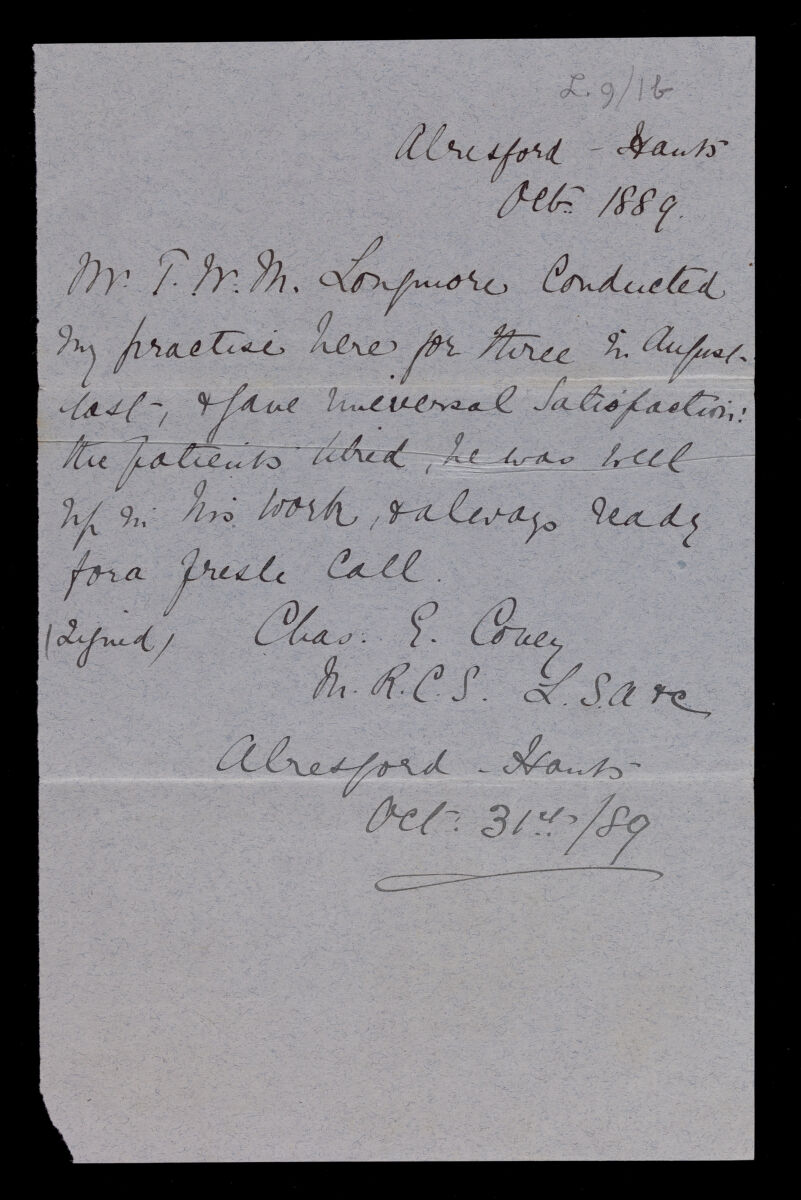 L. 9/1b
Alresford - Hants
Octr. 1889.
Mr. T. W. M. Longmore Conducted
my practise here for three in August
last, & gave universal Satisfaction:
the patients liked, he was well
up in his work, & always ready
for a fresh Call.
(Signed) Chas. E. Covey
M. R. C. S. L. S. A &c
Alresford - Hants
Oct: 31st/89